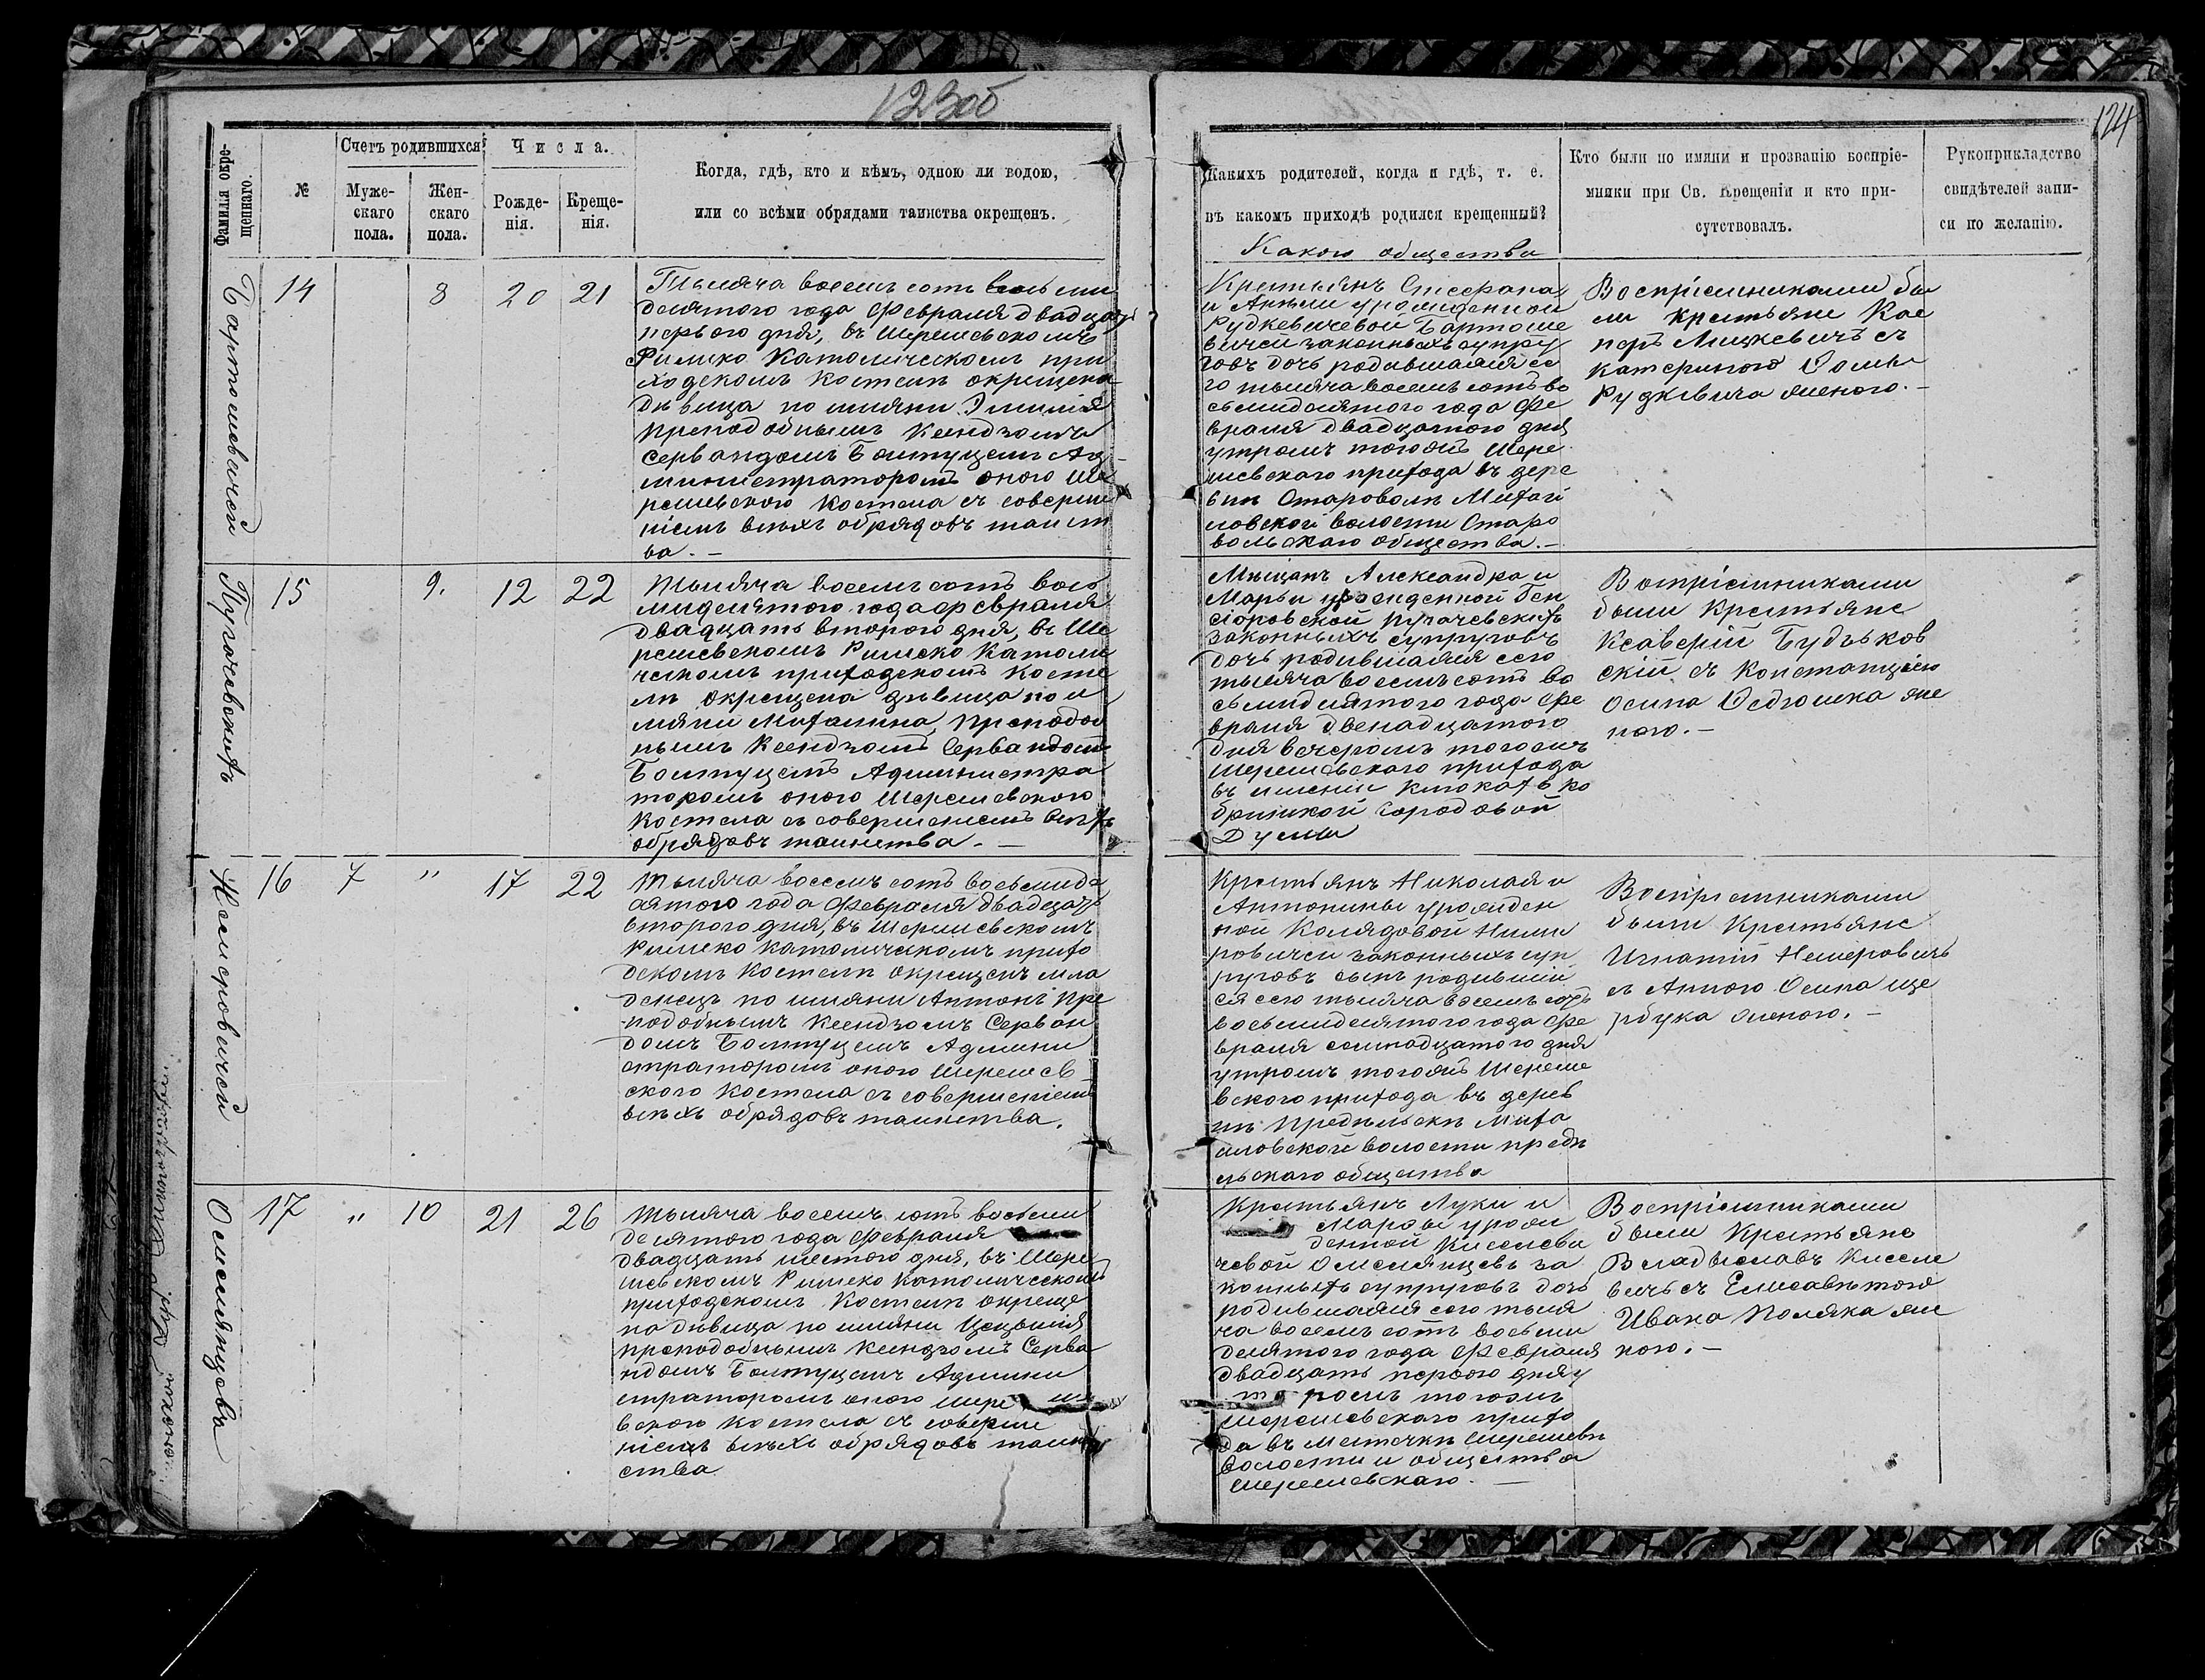 123об
124
Фамилія окре-
щеннаго.
№
Счетъ родившихся
Муже-
скаго
пола.
Жен-
скаго
пола.
Числа.
Рожде-
нія.
Креще-
нія.
Когда, гдѣ, кто и кѣмъ, одною ли водою,
или со всѣми обрядами таинства окрещенъ.
Какихъ родителей, когда и гдѣ, т. е.
въ какомъ приходѣ родился крещенный?
Какого общества
Кто были по имяни и прозванію воспріе-
мники при Св. Крещеніи и кто при-
сутствовалъ.
Рукоприкладство
свидѣтелей запи-
си по желанію.
Бартошевичей
14
8
20
21
Тысяча восемъ сотъ восьми
десятого года Февраля двадцать
перваго дня, въ Шерешевскомъ
Римско Католическомъ при
ходскомъ костелѣ окрещена
дѣвица по имяни Эмилія
преподобнымъ Ксендзомъ
Сервандомъ Болтуцемъ Ад-
министраторомъ оного Ше
решевского Костела съ соверше
ніемъ всѣхъ обрядовъ таинст
ва. –
Крестьянъ Стефана
и Анели урожденной
Рудкевичевой Бартоше
вичей законныхъ супру
говъ дочь родившаяся се
го тысяча восемъ сотъ во
сьмидесятого года Фе
враля двадцатого дня
утромъ тогожъ Шере
шевскаго прихода въ дере
внѣ Староволѣ Михай
ловской волости Старо
вольскаго общества. –
Воспріемниками бы
ли крестьяне Кас
перъ Мицкевичъ съ
Катериною
Рудкевича женою. –
Пугачевскихъ
15
9.
12
22
Тысяча восемъ сотъ вось
мидесятого года Февраля
двадцать второго дня, въ Ше
решевскомъ Римско Католи
ческомъ приходскомъ Косте
лѣ окрещена дѣвица по и
мяни Михалина, преподоб
нымъ Ксендзомъ Сервандомъ
Болтуцемъ Администра
торомъ оного Шерешевского
Костела съ совершеніемъ всѣхъ
обрядовъ таинства. –
Мѣщанъ Александра и
Марьи урожденной Ген
сіоровской Пугачевскихъ
законныхъ супруговъ
дочь родившаяся сего
тысяча восемъ сотъ во
сьмидесятого года Фе
враля двенадцатого
дня вечеромъ тогожъ
Шерешевского прихода
въ имѣніи Клюкахъ Ко
бринской городовой
Думы
Воспріемниками
были Крестьяне
Ксаверій Будьков
скій съ Констанціею
Осипа женою. –
Немеровичей
16
7
"
17
22
Тысяча восемъ сотъ восьмиде
сятого года Февраля двадцать
второго дня, въ Шерешевскомъ
Римско католическомъ прихо
дскомъ костелѣ окрещенъ мла
денецъ по имяни Антонъ пре
подобнымъ Ксендзомъ Серван
домъ Болтуцемъ Админи
страторомъ оного Шерешев
ского Костела съ совершеніемъ
всѣхъ обрядовъ таинства.
Крестьянъ Николая и
Антонины урожден
ной Колядовой Неме
ровичей законныхъ суп
руговъ сынъ родивший
ся сего тысяча восемъ сотъ
восьмидесятого года Фе
враля семнадцатого дня
утромъ тогожъ Шереше
вского прихода въ дерев
нѣ Предѣльскѣ Миха
иловской волости предѣ
льскаго общества
Воспріемниками
были Крестьяне
Игнатій Немеровичъ
съ Анною Осипа Ще
рбука женою. –
Омелянцовъ
17
"
10
21
26
Тысяча восемъ сотъ восьми
десятого года Февраля
двадцать шестого дня, въ Шере
шевскомъ Римско католическомъ
приходскомъ Костелѣ окреще
на дѣвица по имяни Цецылія
преподобнымъ Ксендзомъ Серва
ндомъ Болтуцемъ Админи
страторомъ оного Шере ше
вского костела съ соверше
ніемъ всѣхъ обрядовъ таин
ства
Крестьянъ Луки и
Марфы урож
денной Киселеви
чевой Омелянцевъ за
конныхъ супруговъ дочь
родившаяся сего тыся
ча восемъ сотъ восьми
десятого года Февраля
двадцать перваго дня у
тромъ тогожъ
Шерешевскаго прихо
да въ местечкѣ Шерешевѣ
волости и общества
Шерешевскаго. –
Воспріемниками
были Крестьяне
Владыславъ Кисле
вичъ съ Елисаветою
Ивана Поляка же
ною. –